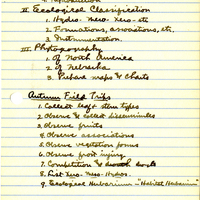 II Ecological Classification
1. Hydro- Xero- etc
2. Formations, associations, etc.
3. Instrumentation.
III Phytogeography
1. Of North America
2. Of Nebraska
3. Prepare maps & charts
Autumn Field Trips
1. Collect leaf & stem types
2. Observe & collect disseminules
3. Observe fruits
4. Observe associations
5. Observe vegetation forms
6. Observe frost injury
7. Competition &
8. List Xero- Meso- Hydro-
9. Ecological Herbarium - Habitat Herbarium